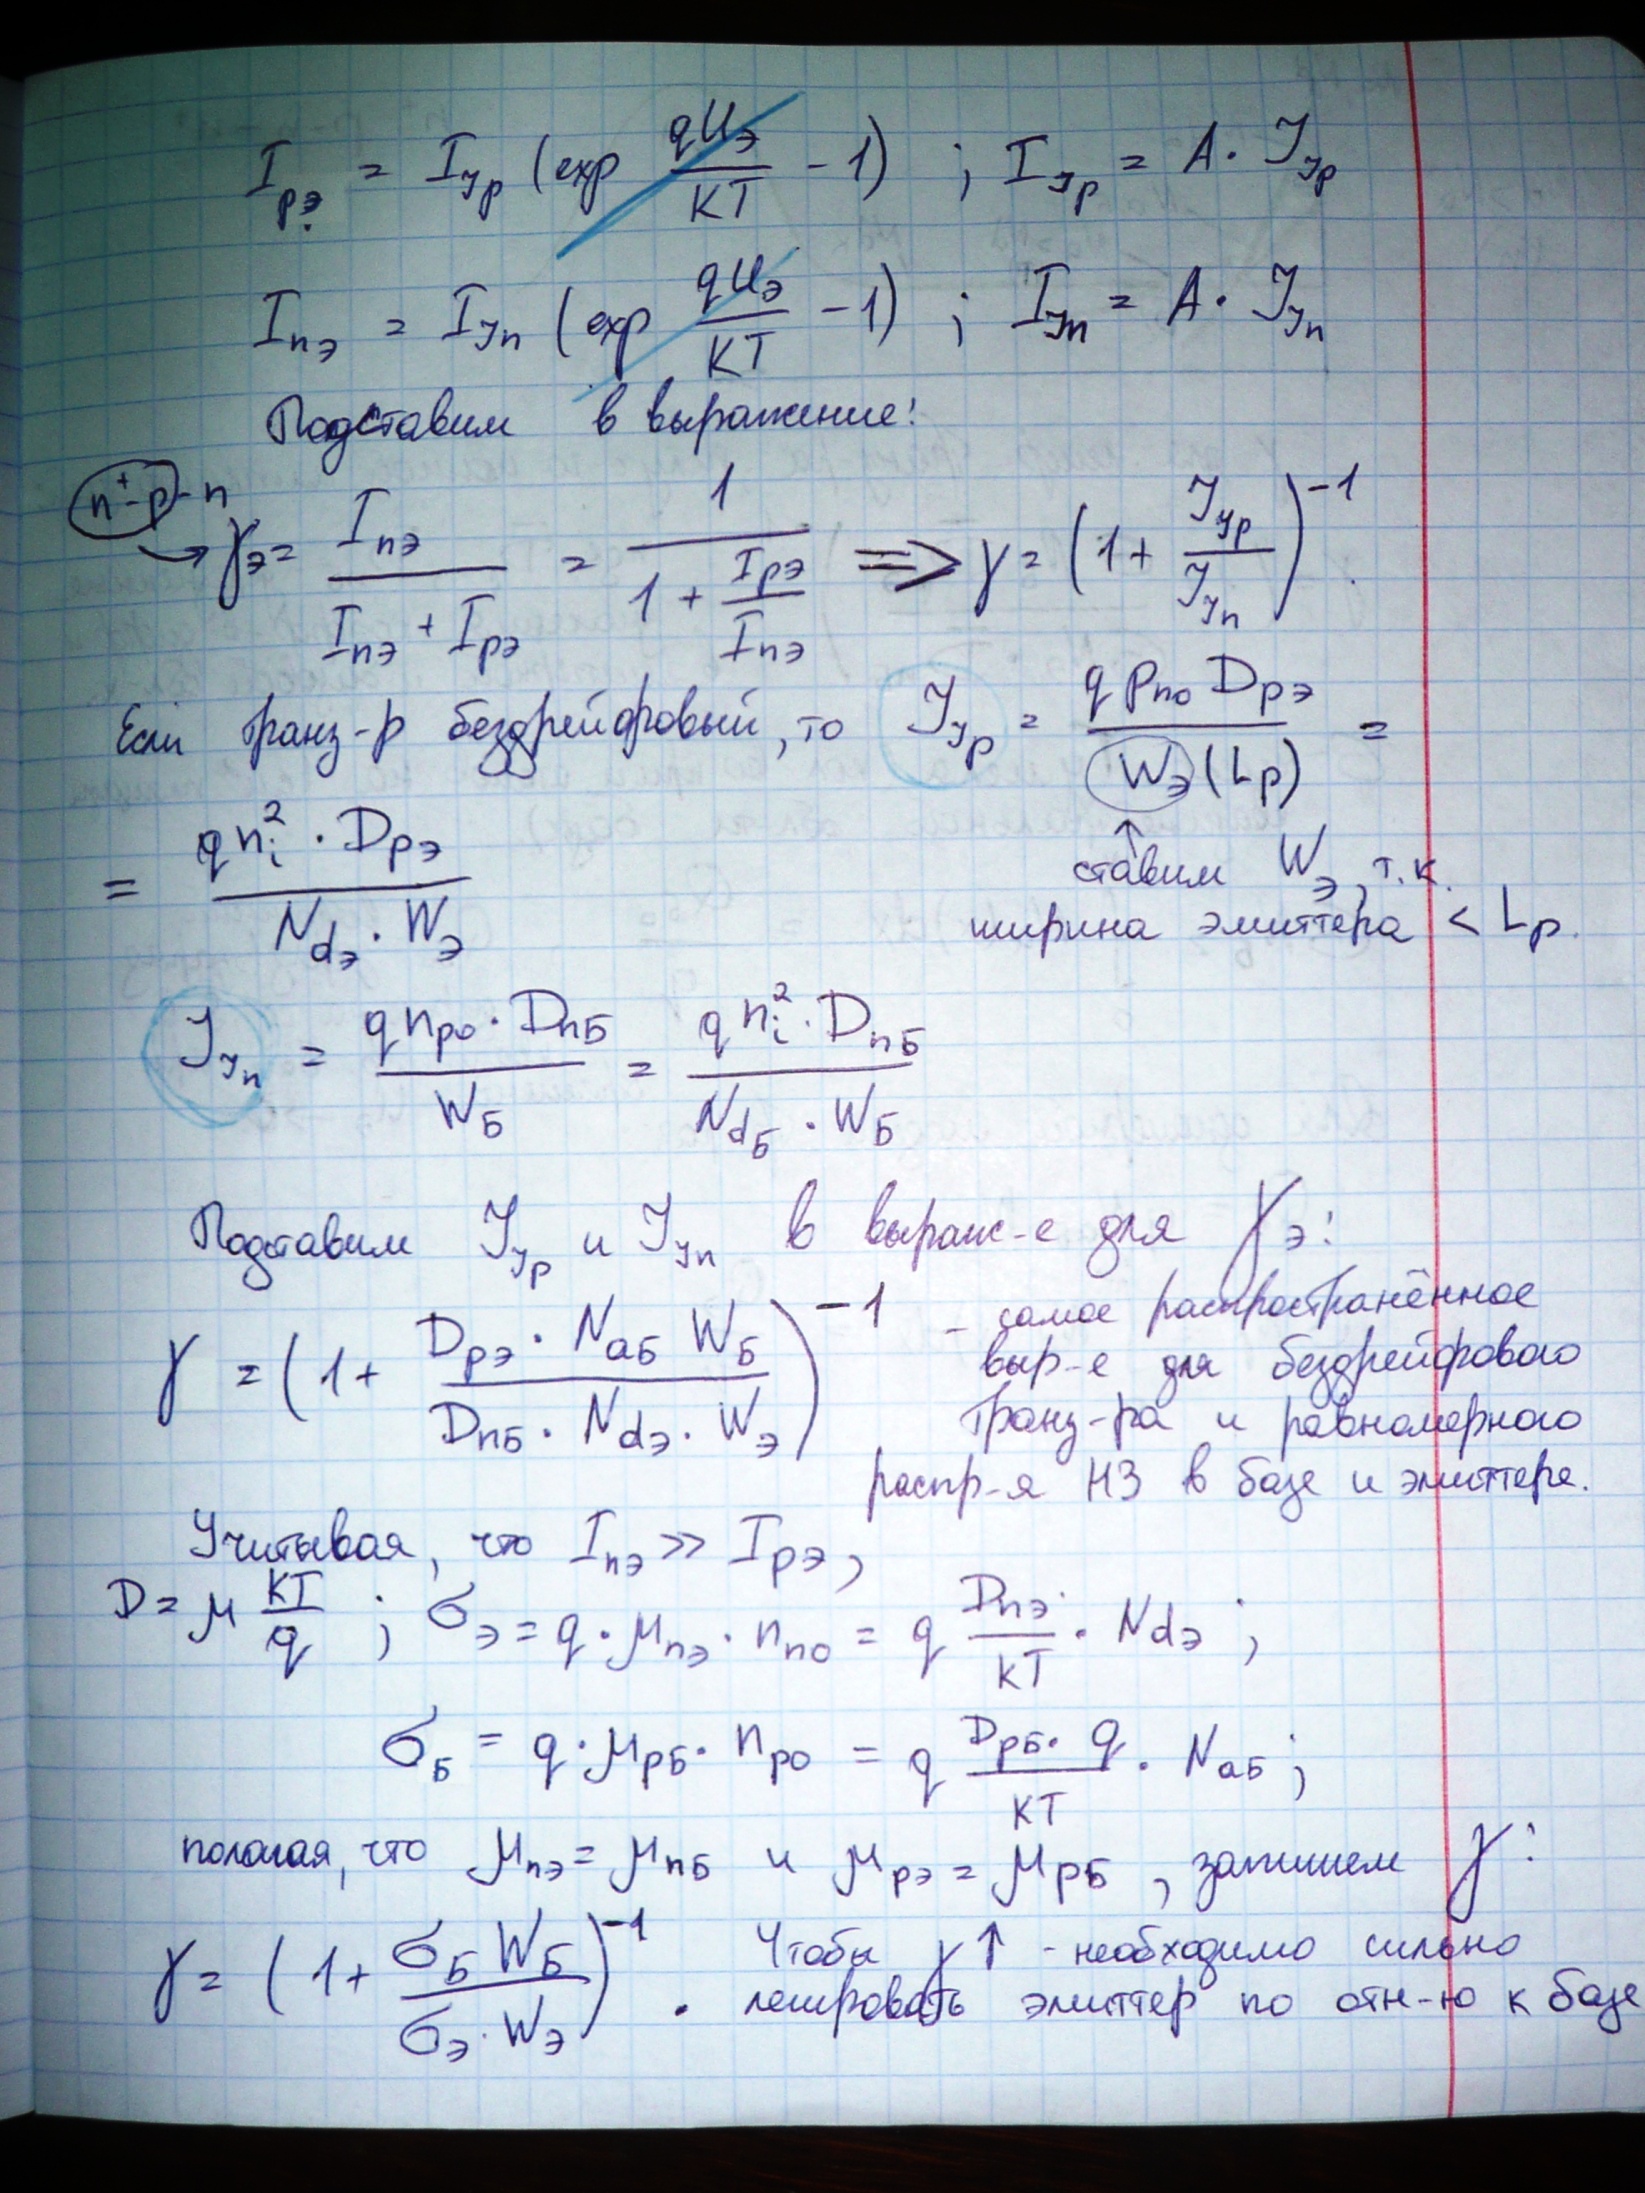 I_pэ = I_yp (exp qUэ/KT - 1) ; I_yp = A · J_yp
I_nэ = I_yn (exp qUэ/KT - 1) ; I_yn = A · J_yn
Подставим в выражение:
n⁺-p-n
γэ = I_nэ / (I_nэ + I_pэ) = 1 / (1 + I_pэ/I_nэ) ⇒ γ = (1 + J_yp/J_yn)⁻¹.
Если транз-р бездрейфовый, то J_yp = q p_no D_pэ / Wэ (Lp) =
= q n_i² · D_pэ / (N_dэ · Wэ)
↑
ставим Wэ, т.к.
ширина эмиттера < Lp.
J_yn = q n_po · D_nБ / W_Б = q n_i² · D_nБ / (N_dБ · W_Б)
Подставим J_yp и J_yn в выраж-е для γэ:
γ = (1 + D_pэ · N_aБ W_Б / (D_nБ · N_dэ · Wэ))⁻¹ - самое распространённое
выр-е для бездрейфового
транз-ра и равномерного
распр-я НЗ в базе и эмиттере.
Учитывая, что I_nэ >> I_pэ,
D = μ KT/q ; σэ = q · μ_nэ · n_no = q D_nэ/KT · N_dэ ;
σ_Б = q · μ_pБ · n_po = q D_pБ · q/KT · N_aБ ;
полагая, что μ_nэ = μ_nБ и μ_pэ = μ_pБ, запишем γ:
γ = (1 + σ_Б W_Б / (σэ · Wэ))⁻¹. Чтобы γ↑ - необходимо сильно
легировать эмиттер по отн-ю к базе